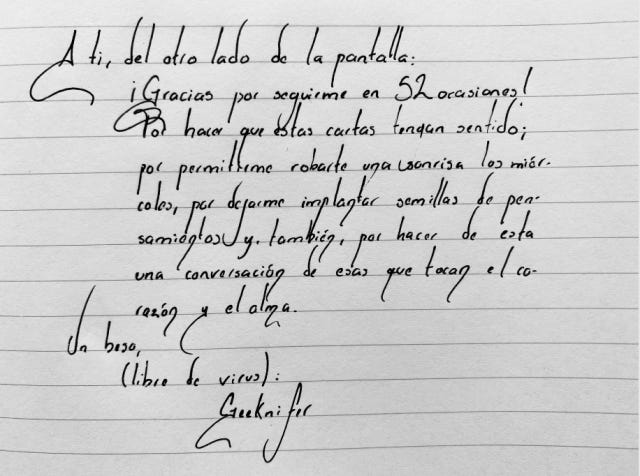 A ti, del otro lado de la pantalla:
¡Gracias por seguirme en 52 ocasiones!
Por hacer que estas cartas tengan sentido;
por permitirme robarte una sonrisa los miér-
coles, por dejarme implantar semillas de pen-
samientos y, también, por hacer de esta
una conversación de esas que tocan el co-
razón y el alma.
Un beso,
(libre de virus):
Geeknifer